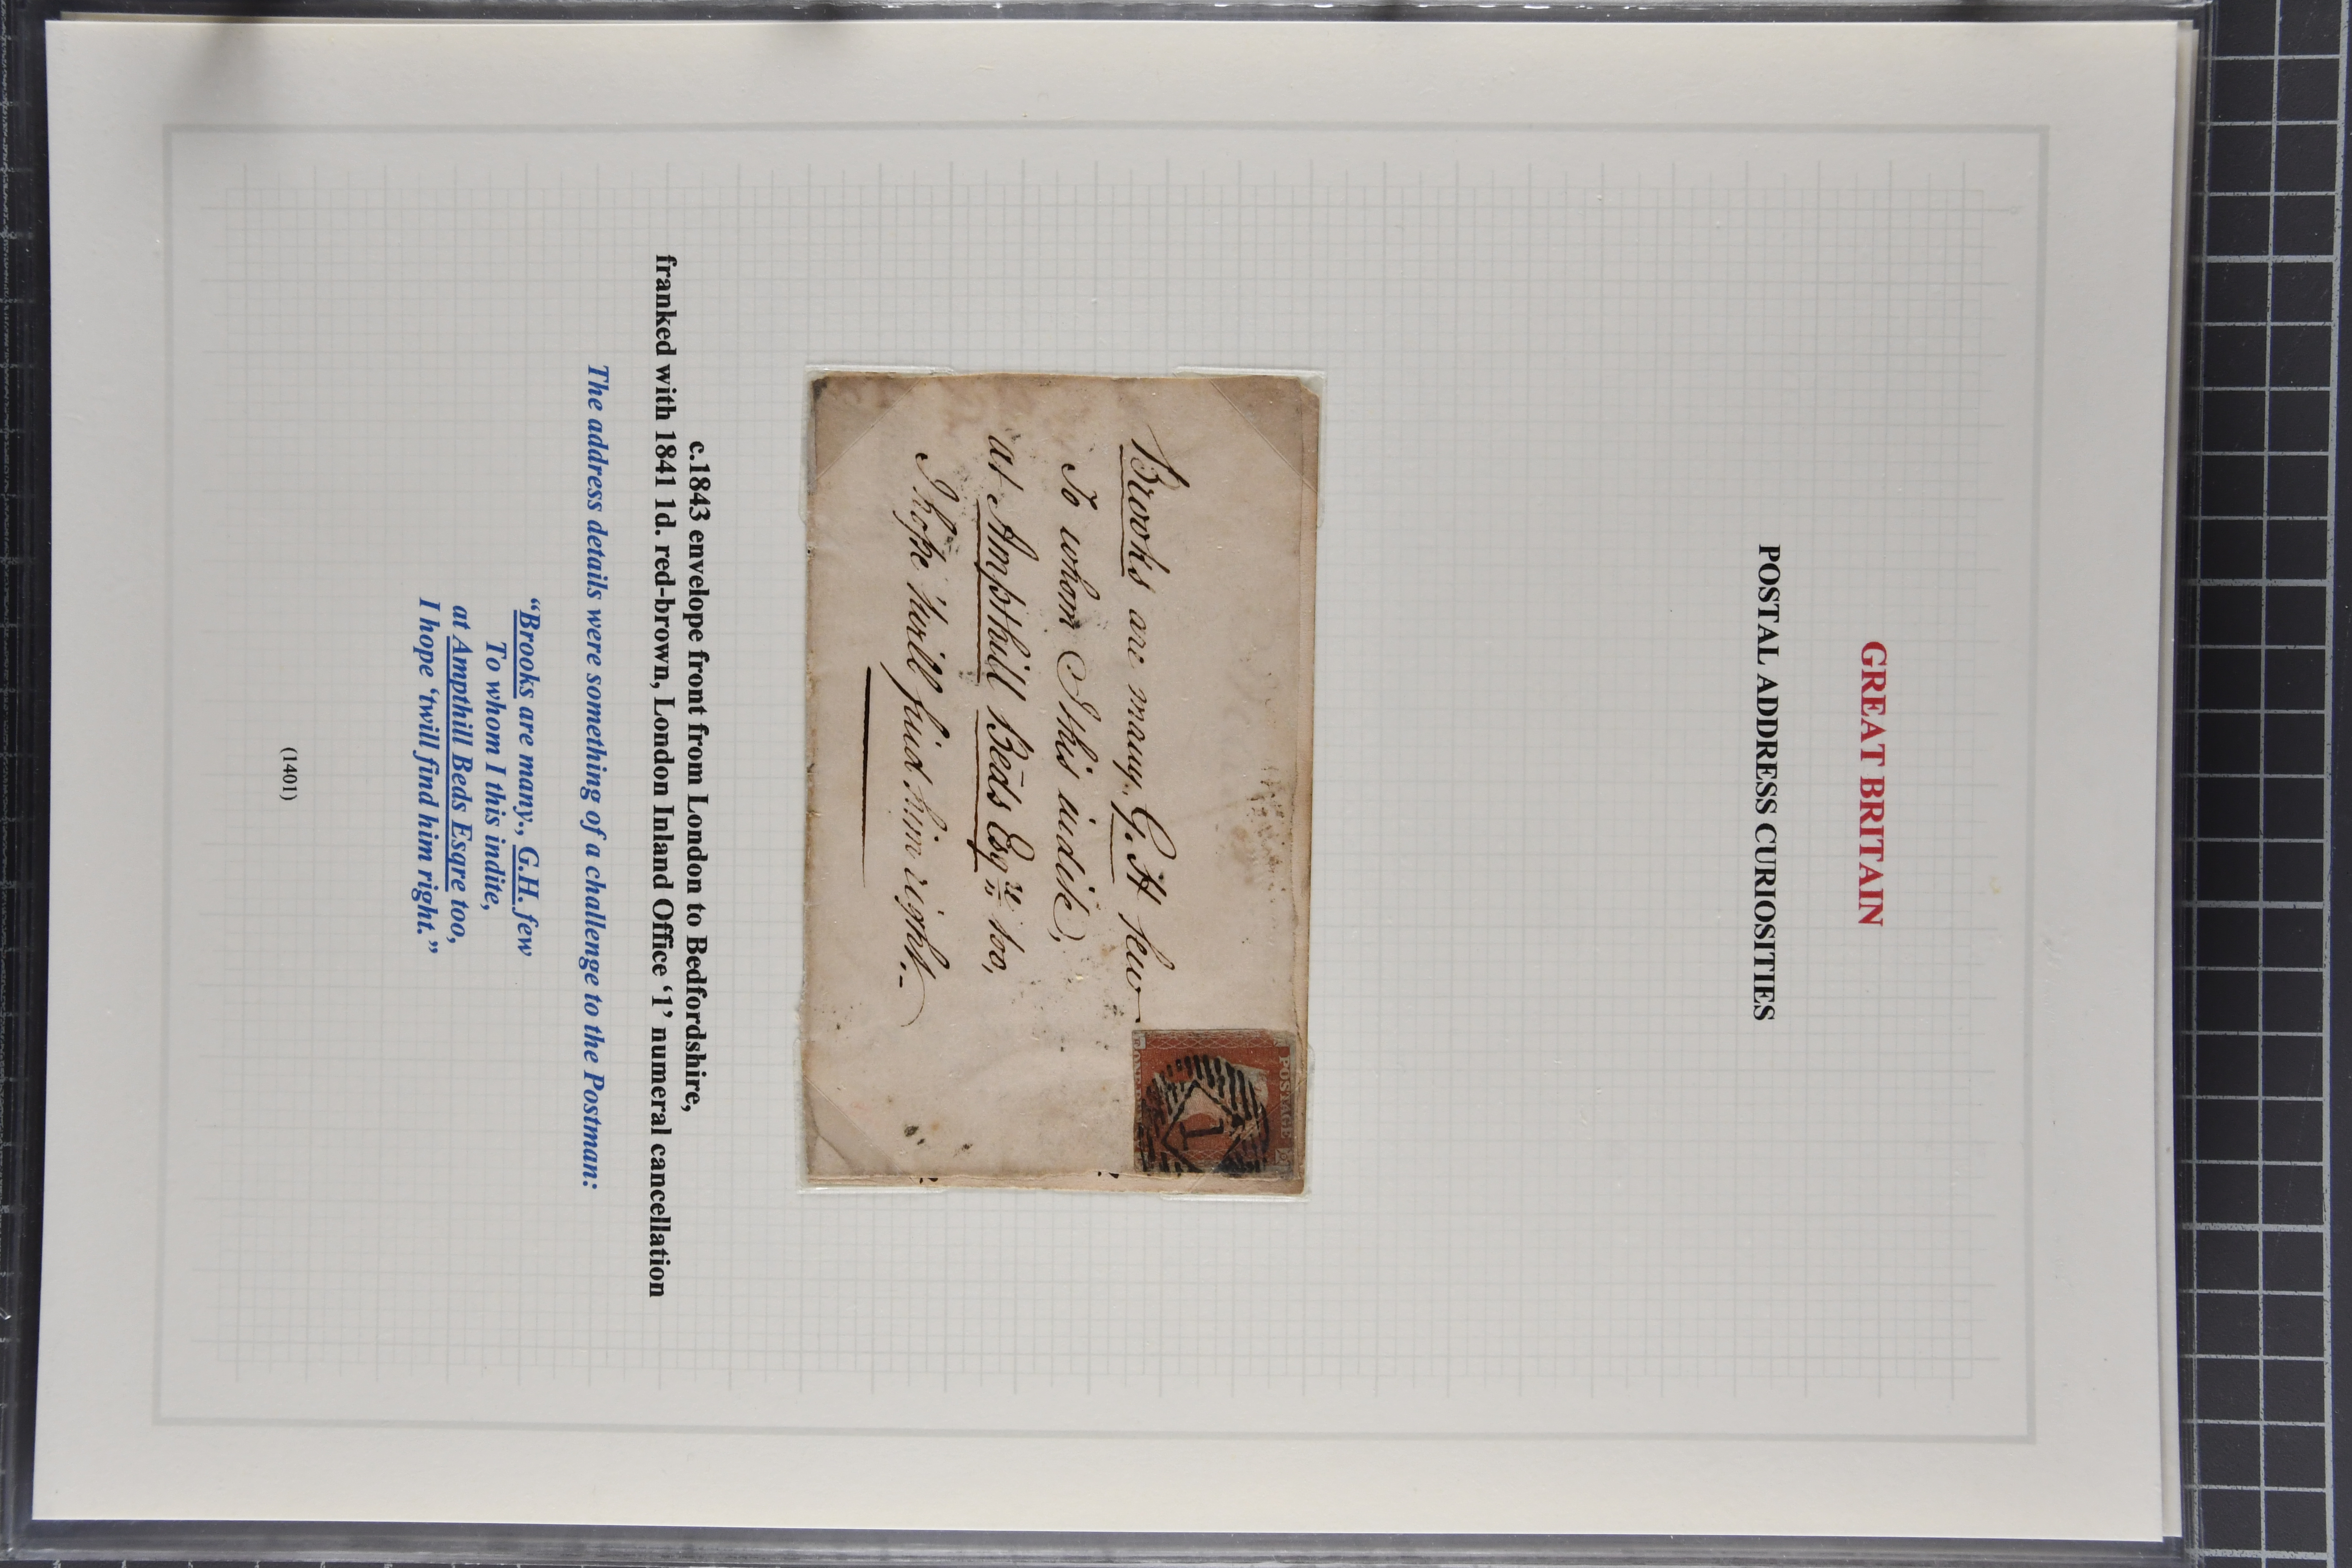 GREAT BRITAIN
POSTAL ADDRESS CURIOSITIES
POSTAGE
1
Brooks are many, G. H few
To whom I this indite,
at Ampthill Beds Esqre too,
I hope 'twill find him right.
c.1843 envelope front from London to Bedfordshire,
franked with 1841 1d. red-brown, London Inland Office ‘1’ numeral cancellation
The address details were something of a challenge to the Postman:
“Brooks are many., G.H. few
To whom I this indite,
at Ampthill Beds Esqre too,
I hope ‘twill find him right.”
(1401)